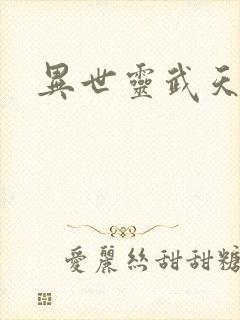 異世靈武天
愛麗絲甜甜糖